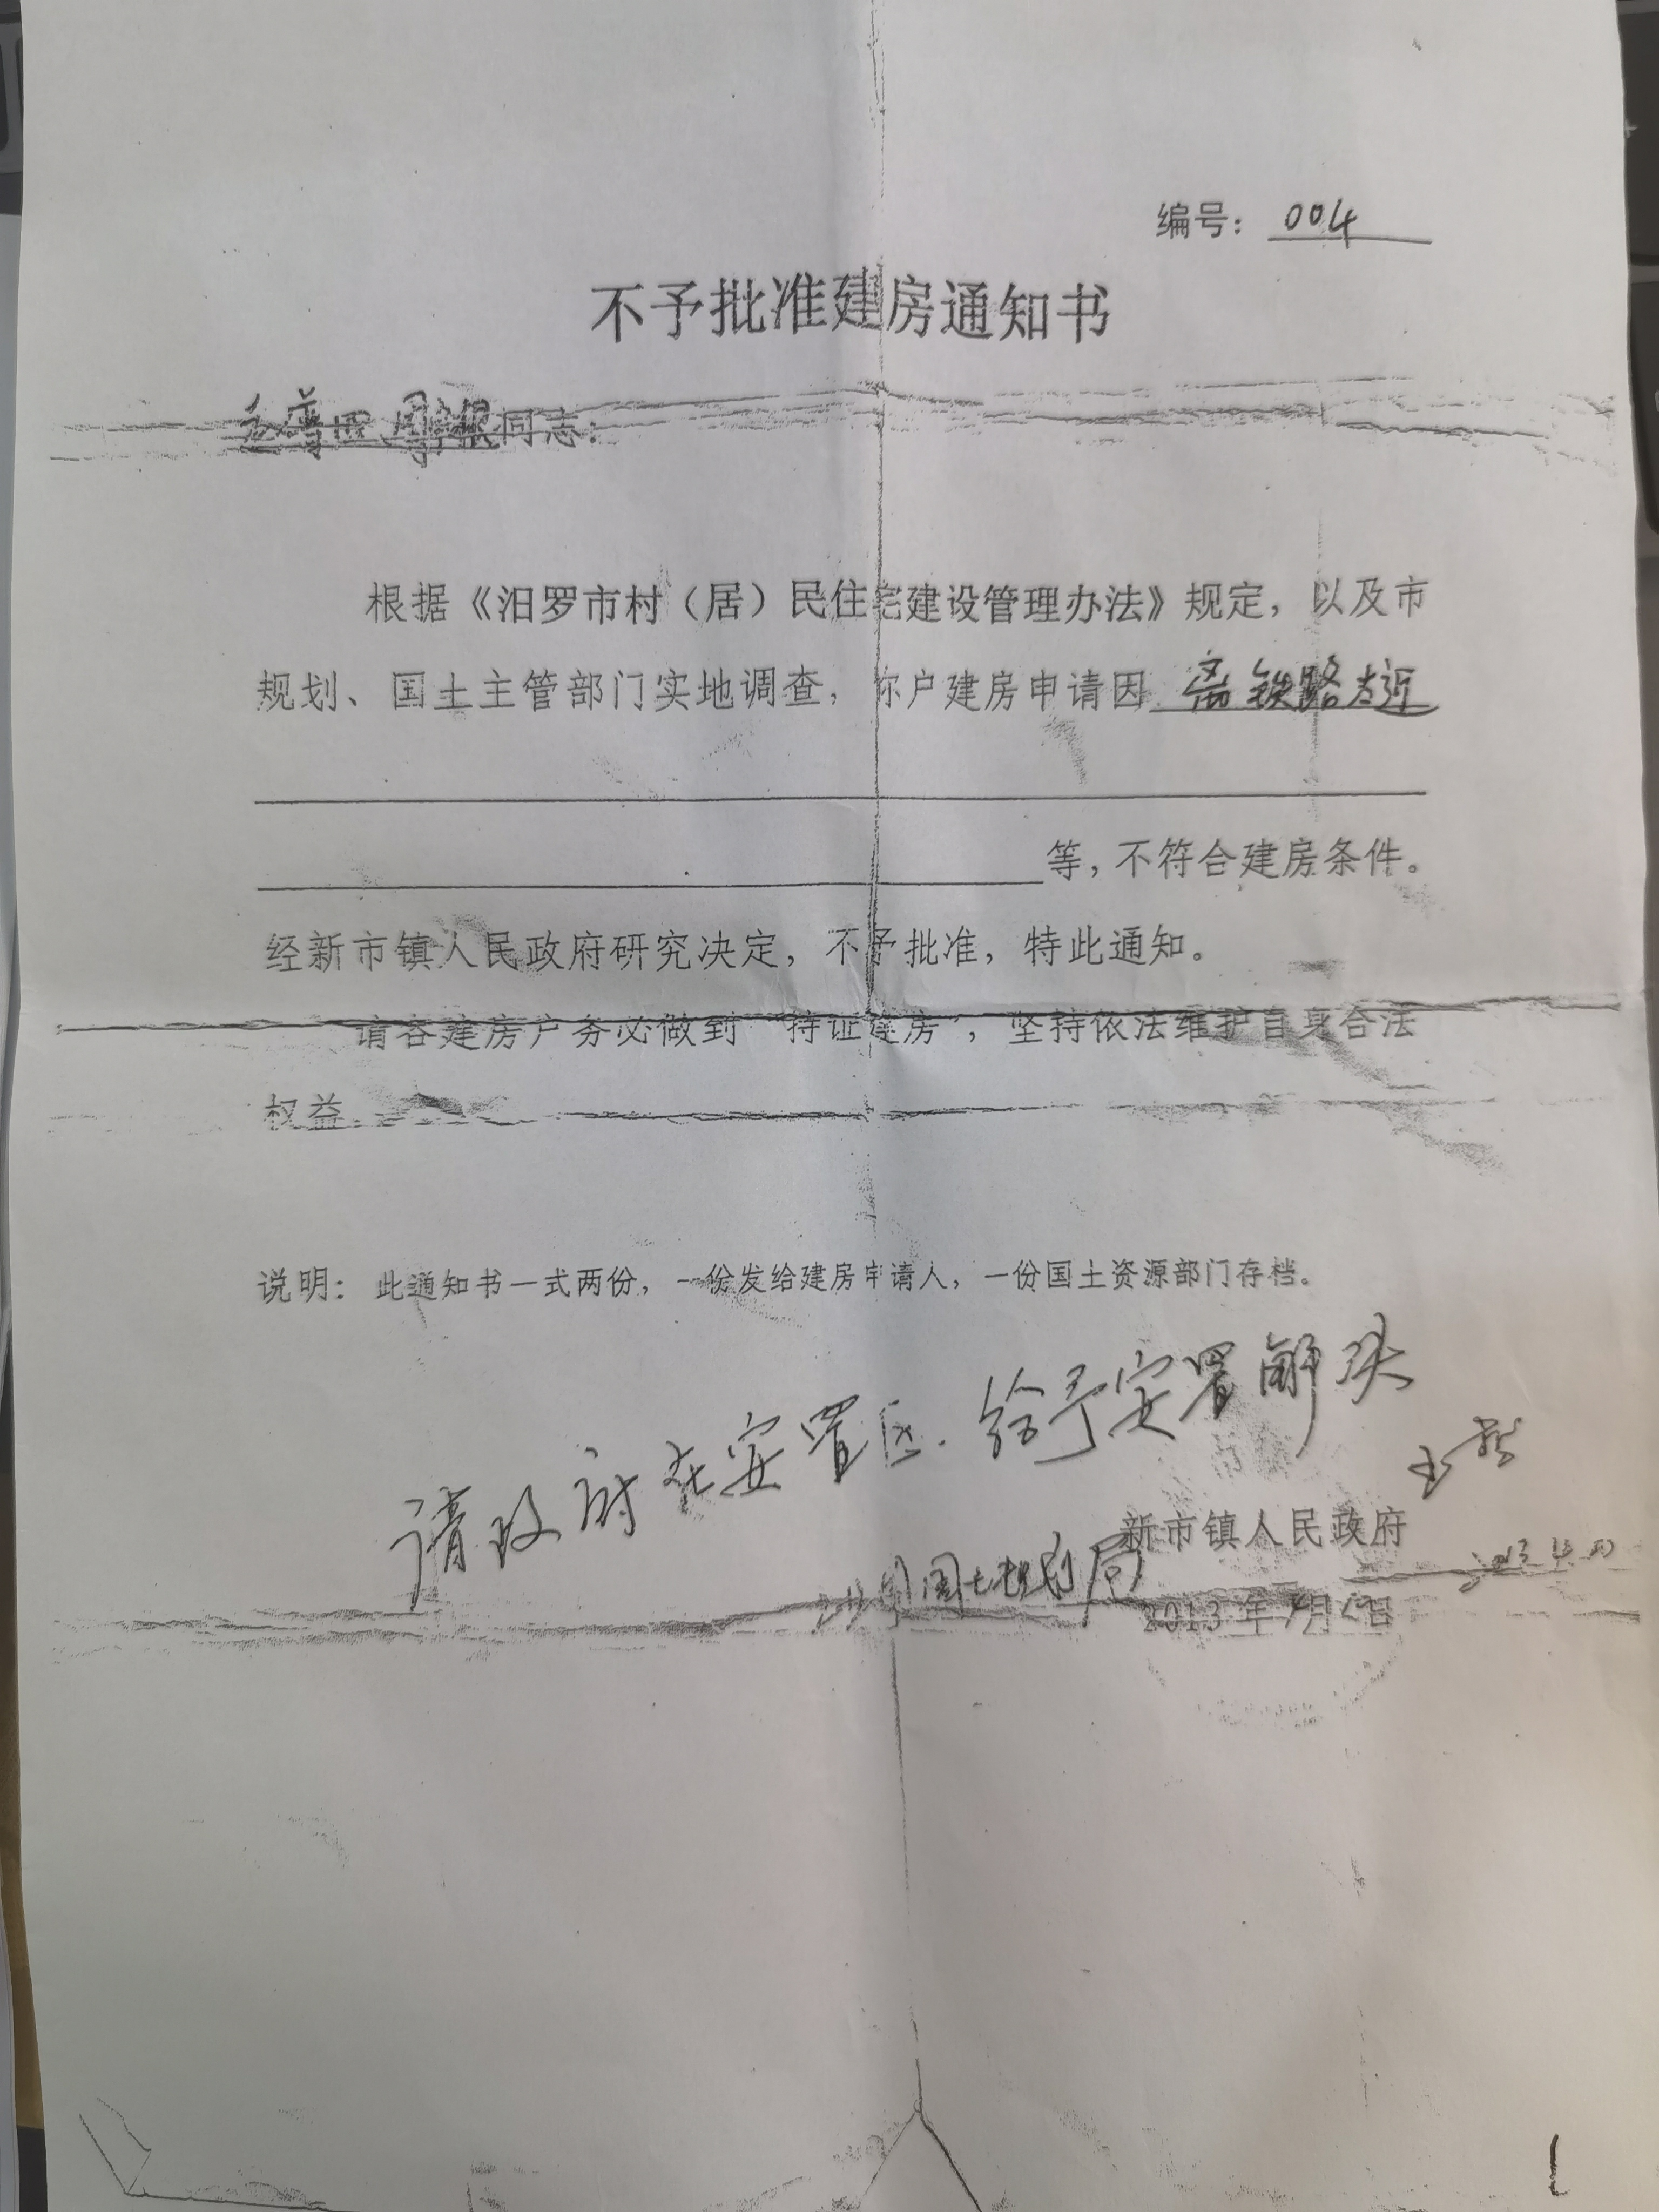 编号：004
不予批准建房通知书
同志：
根据《汨罗市村（居）民住宅建设管理办法》规定，以及市
规划、国土主管部门实地调查，你户建房申请因 离铁路太近
等，不符合建房条件。
经新市镇人民政府研究决定，不予批准，特此通知。
请各建房户务必做到“持证建房”，坚持依法维护自身合法
权益。
说明：此通知书一式两份，一份发给建房申请人，一份国土资源部门存档。
请政府在安置区.给予安置解决
新市镇人民政府
国土规划局
2013年 月 日